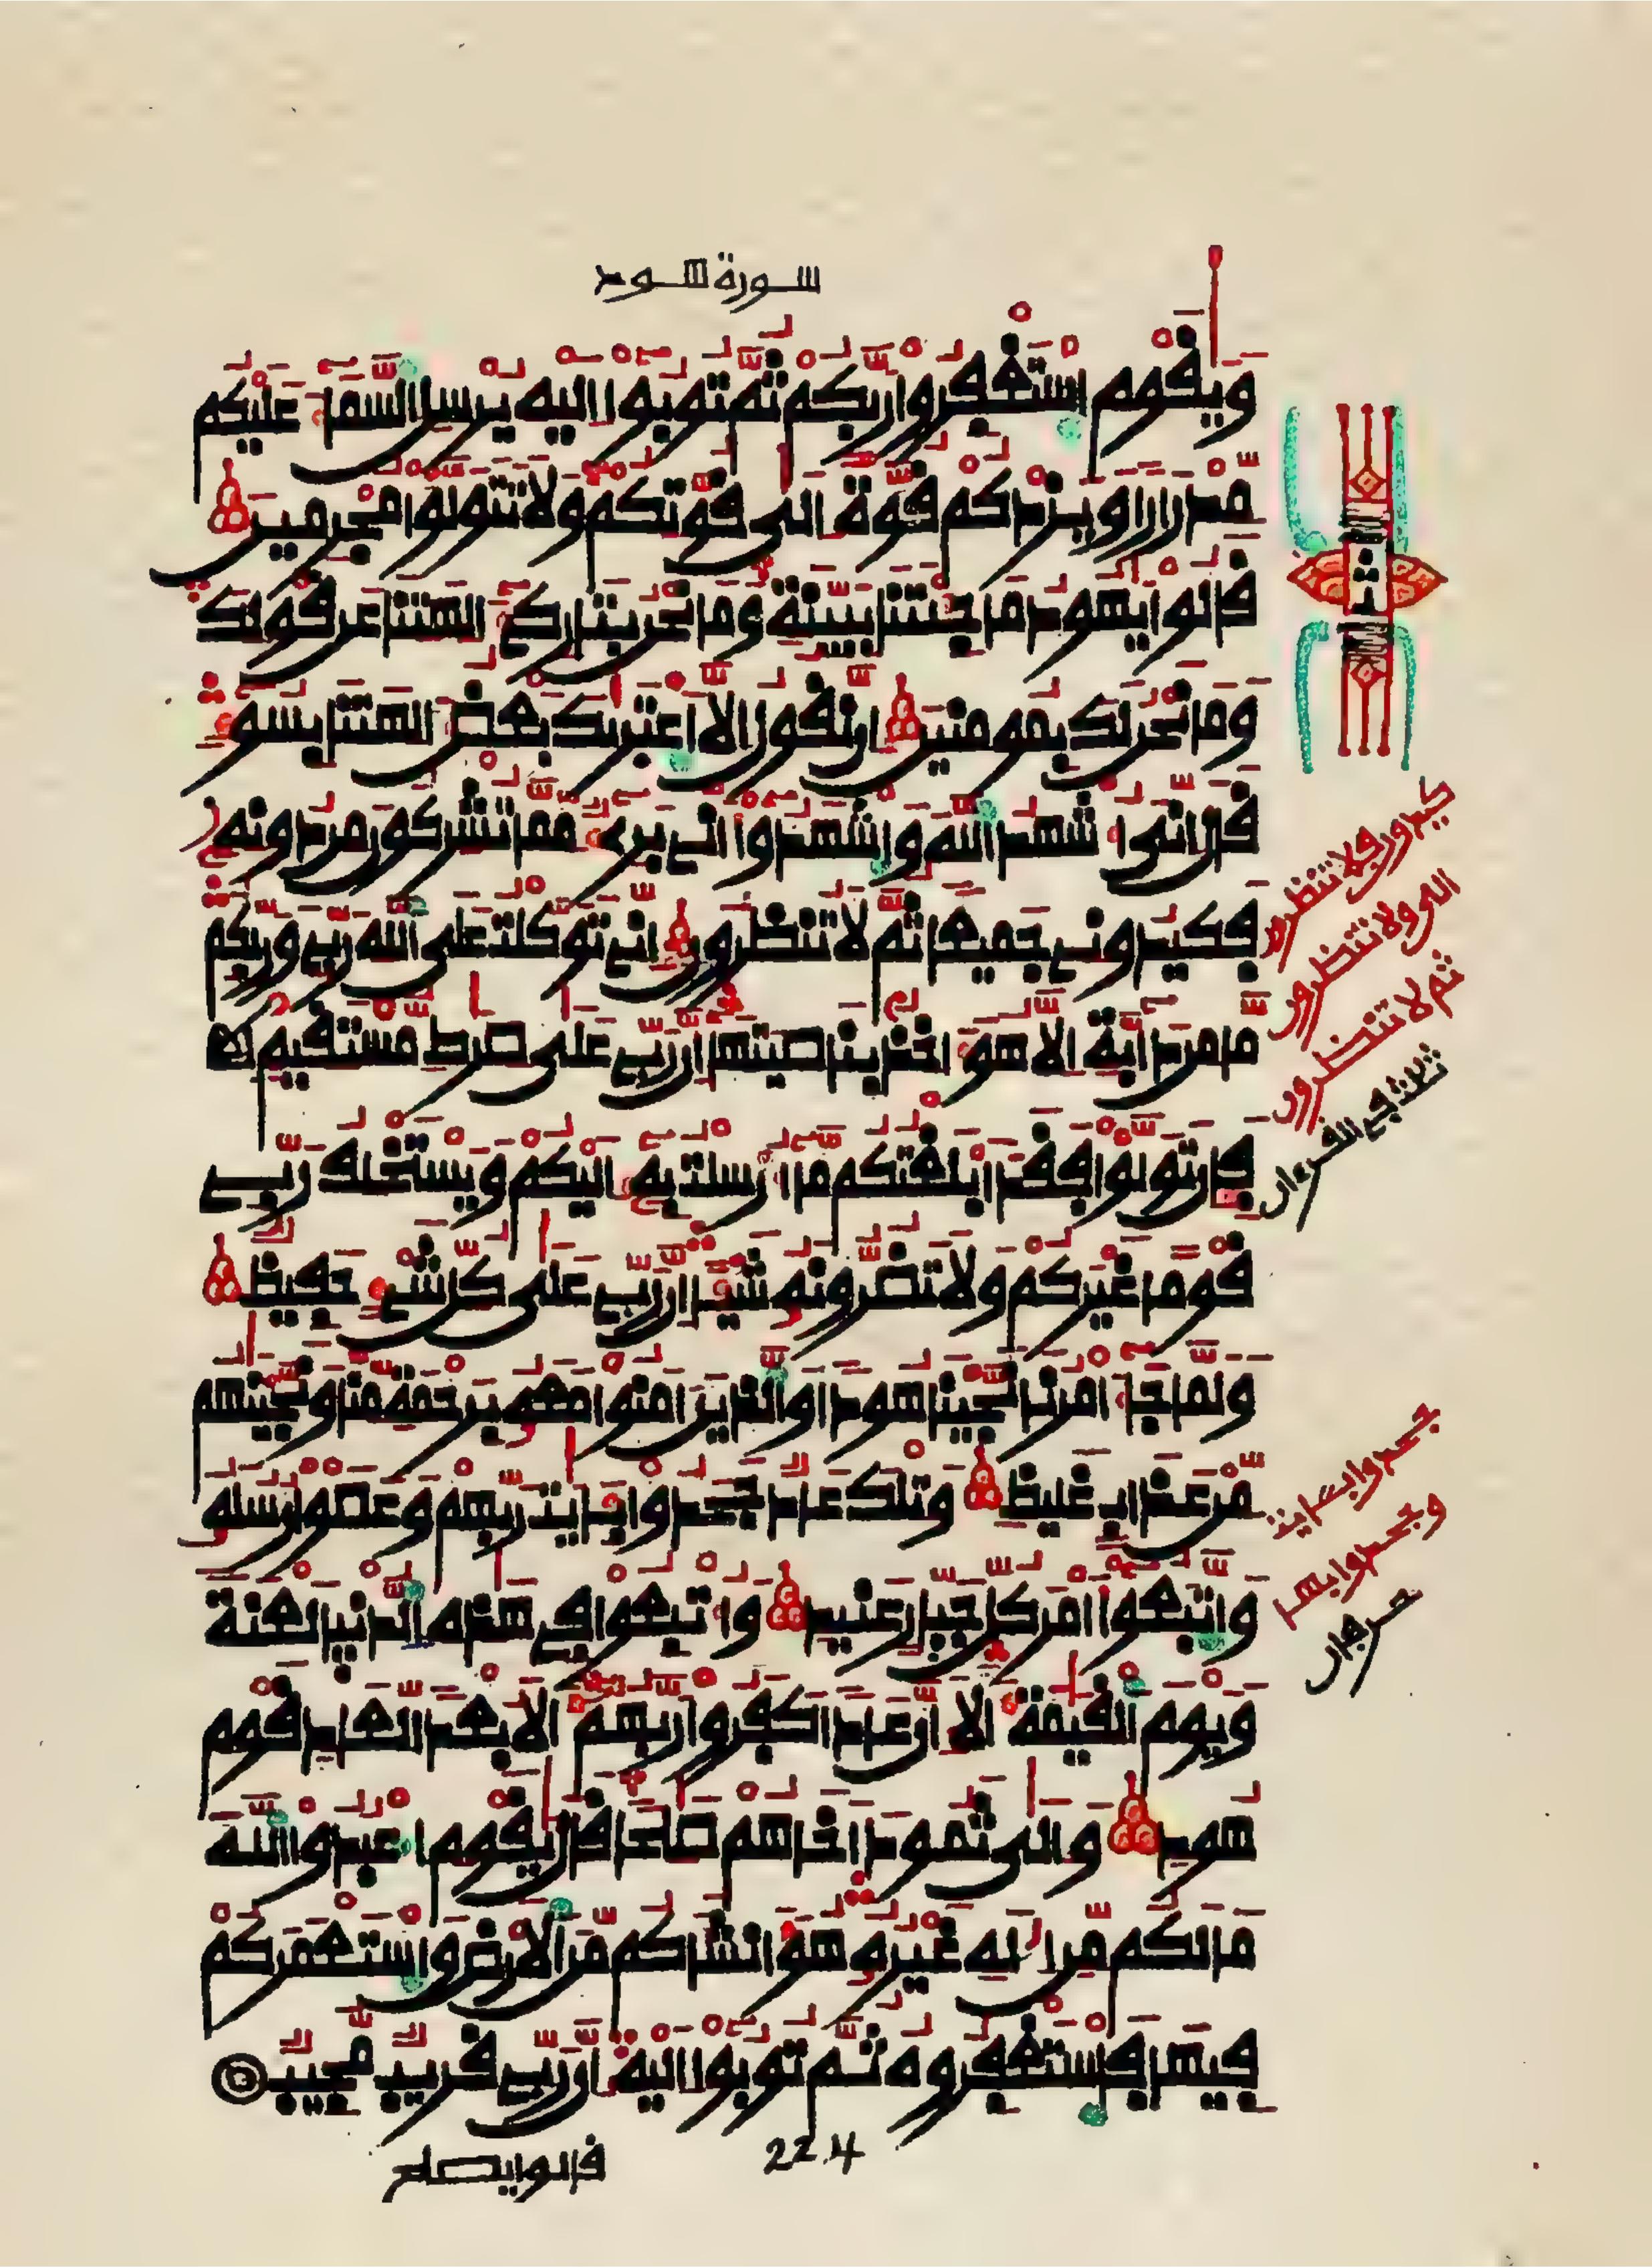 سورة هود
ويقوم استغفروا ربكم ثم توبوا إليه يرسل السما عليكم
مدرارا ويزدكم قوة إلى قوتكم ولا تتولوا مجرمين
قالوا يهود ما جئتنا ببينة وما نحن بتاركي الهتنا عن قولك
وما نحن لك بمومنين ان نقول الا اعتريك بعض الهتنا بسو
قال اني اشهد الله واشهدوا اني بري مما تشركون من دونه
فكيدوني جميعا ثم لا تنظرون اني توكلت على الله ربي وربكم
ما من دابة الا هو اخذ بناصيتها ان ربي على صرط مستقيم
فان تولوا فقد ابلغتكم ما ارسلت به اليكم ويستخلف ربي
قوما غيركم ولا تضرونه شيا ان ربي على كل شي حفيظ
ولما جا امرنا نجينا هودا والذين امنوا معه برحمة منا ونجينهم
من عذاب غليظ وتلك عاد جحدوا بايت ربهم وعصوا رسله
واتبعوا امر كل جبار عنيد واتبعوا في هذه الدنيا لعنة
ويوم القيمة الا ان عادا كفروا ربهم الا بعدا لعاد قوم
هود والى ثمود اخاهم صلحا قال يقوم اعبدوا الله
ما لكم من اله غيره هو انشاكم من الارض واستعمركم
فيها فاستغفروه ثم توبوا اليه ان ربي قريب مجيب
224
قالوا يصلح
ثمن
كيدون ولا تنظرون
ولا تنظرون
ثم لا تنظرون
ثلث في القرءان
جحدوا بايت
وجحدوا بها
حرفان